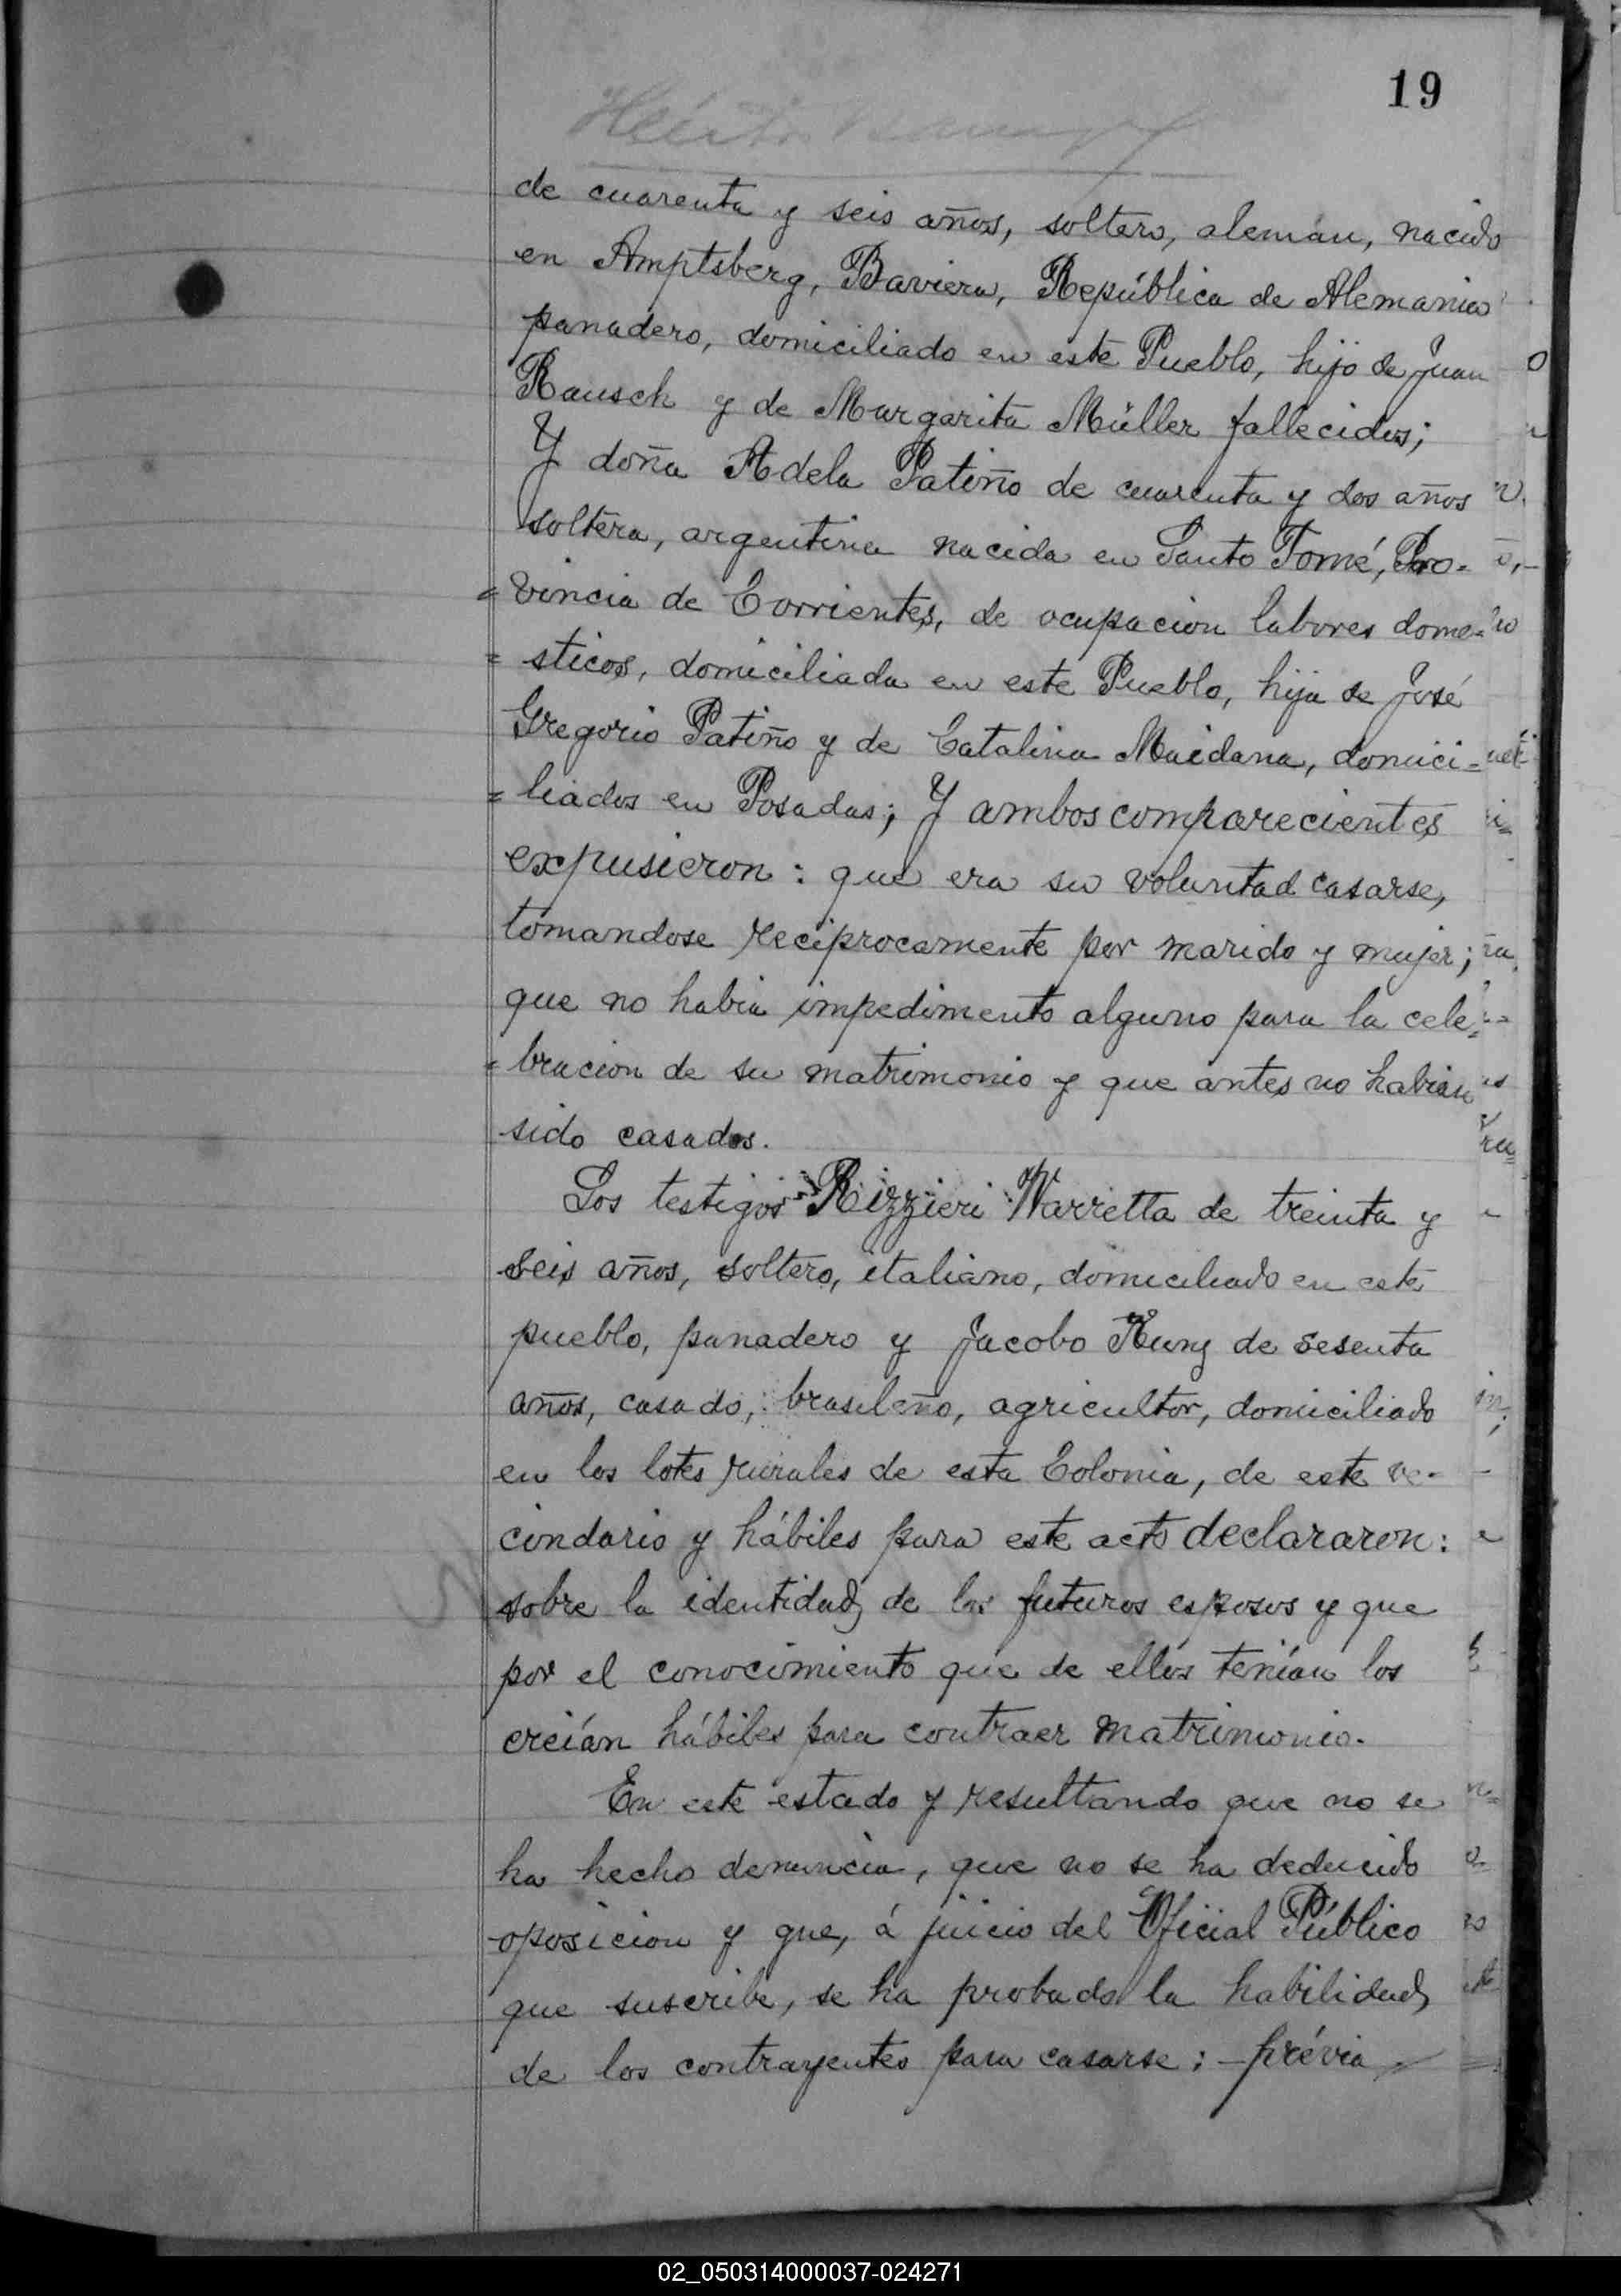 19
de cuarenta y seis años, soltero, alemán, nacido
en Amptsberg, Baviera, República de Alemania
panadero, domiciliado en este Pueblo, hijo de Juan
Rausch y de Margarita Müller fallecidos;
Y doña Adela Patiño de cuarenta y dos años
soltera, argentina nacida en Santo Tomé, Pro-
=vincia de Corrientes, de ocupacion labores dome=
=sticos, domiciliada en este Pueblo, hija de José
Gregorio Patiño y de Catalina Maidana, domici=
=liados en Posadas; Y ambos comparecientes
expusieron: que era su voluntad casarse,
tomandose reciprocamente por marido y mujer;
que no habia impedimento alguno para la cele=
=bracion de su matrimonio y que antes no habian
sido casados.
Los testigos Rizzieri Warretta de treinta y
seis años, soltero, italiano, domiciliado en este
pueblo, panadero y Jacobo Kunz de sesenta
años, casado, brasileño, agricultor, domiciliado
en los lotes rurales de esta Colonia, de este ve-
cindario y hábiles para este acto declararon:
sobre la identidad de los futuros esposos y que
por el conocimiento que de ellos tenían los
creían hábiles para contraer matrimonio.
En este estado y resultando que no se
ha hecho denuncia, que no se ha deducido
oposicion y que, á juicio del Oficial Público
que suscribe, se ha probado la habilidad
de los contrayentes para casarse; -prévia
02_050314000037-024271